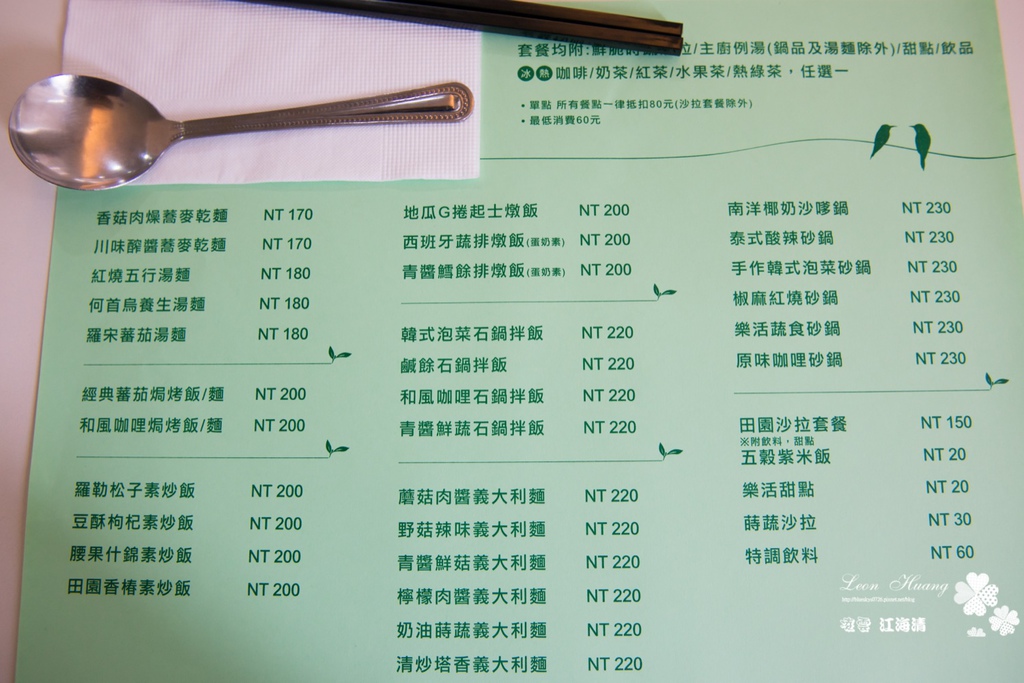 套餐均附:鮮脆時拉/主廚例湯(鍋品及湯麵除外)/甜點/飲品
冰 熱 咖啡/奶茶/紅茶/水果茶/熱綠茶，任選一
• 單點 所有餐點一律抵扣80元(沙拉套餐除外)
• 最低消費60元
香菇肉燥蕎麥乾麵 NT 170
川味醡醬蕎麥乾麵 NT 170
紅燒五行湯麵 NT 180
何首烏養生湯麵 NT 180
羅宋蕃茄湯麵 NT 180
經典蕃茄焗烤飯/麵 NT 200
和風咖哩焗烤飯/麵 NT 200
羅勒松子素炒飯 NT 200
豆酥枸杞素炒飯 NT 200
腰果什錦素炒飯 NT 200
田園香椿素炒飯 NT 200
地瓜G捲起士燉飯 NT 200
西班牙蔬排燉飯(蛋奶素) NT 200
青醬鱈餘排燉飯(蛋奶素) NT 200
韓式泡菜石鍋拌飯 NT 220
鹹餘石鍋拌飯 NT 220
和風咖哩石鍋拌飯 NT 220
青醬鮮蔬石鍋拌飯 NT 220
蘑菇肉醬義大利麵 NT 220
野菇辣味義大利麵 NT 220
青醬鮮菇義大利麵 NT 220
檸檬肉醬義大利麵 NT 220
奶油蒔蔬義大利麵 NT 220
清炒塔香義大利麵 NT 220
南洋椰奶沙嗲鍋 NT 230
泰式酸辣砂鍋 NT 230
手作韓式泡菜砂鍋 NT 230
椒麻紅燒砂鍋 NT 230
樂活蔬食砂鍋 NT 230
原味咖哩砂鍋 NT 230
田園沙拉套餐 NT 150
※附飲料，甜點
五穀紫米飯 NT 20
樂活甜點 NT 20
蒔蔬沙拉 NT 30
特調飲料 NT 60
Leon Huang
江海清